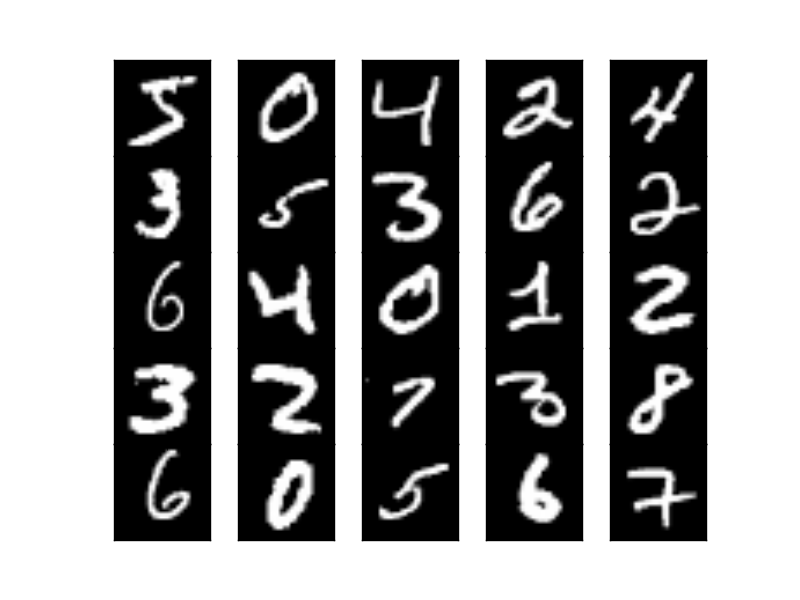 5 0 4 2 4
3 5 3 6 2
6 4 0 1 2
3 2 7 3 8
6 0 5 6 7